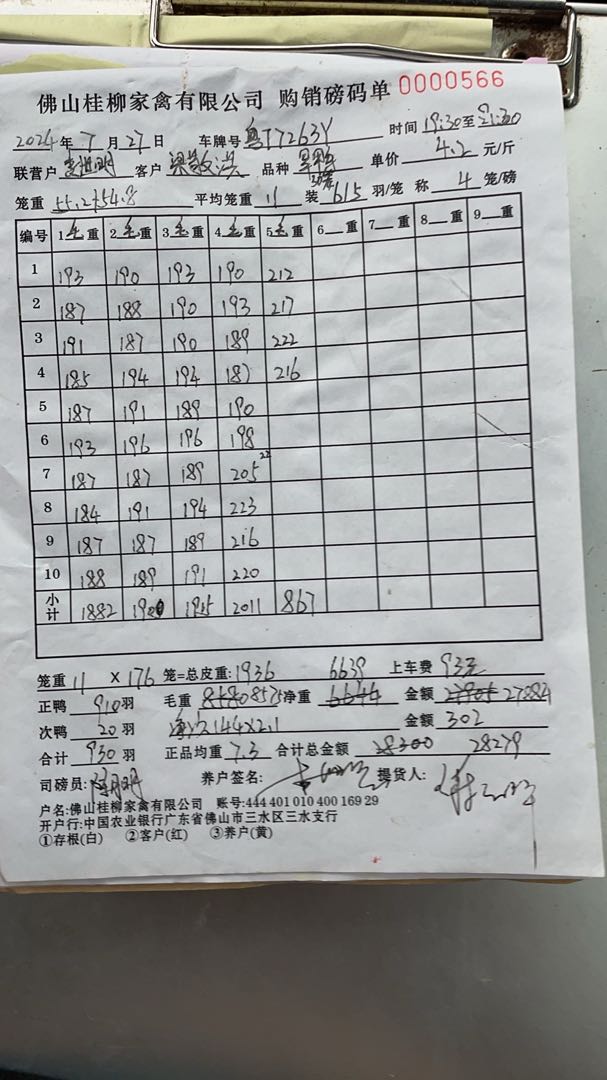 佛山桂柳家禽有限公司 购销磅码单 0000566
2024年7月27日 车牌号 粤T7263Y 时间 19:30至21:30
联营户 客户 品种 单价 4.2 元/斤
笼重 55.2+54.8 平均笼重 11 装 6|5 羽/笼 称 4 笼/磅
编号 1毛重 2毛重 3毛重 4毛重 5毛重 6__重 7__重 8__重 9__重
1 193 190 193 190 212
2 187 188 190 193 217
3 191 187 190 189 222
4 185 194 194 187 216
5 187 191 189 190
6 193 196 196 198
7 187 187 189 205
8 184 191 194 223
9 187 187 189 216
10 188 189 191 220
小计 1882 1900 1915 2011 867
笼重 11 ×176 笼=总皮重: 1936 6639 上车费 93元
正鸭 910 羽 毛重 8580 8575 净重 6644 金额 27905 27884
次鸭 20 羽 净次144×2.1 金额 302
合计 930 羽 正品均重 7.3 合计总金额 28300 28279
司磅员: 养户签名: 提货人:
户名:佛山桂柳家禽有限公司 账号:444 401 010 400 169 29
开户行:中国农业银行广东省佛山市三水区三水支行
①存根(白) ②客户(红) ③养户(黄)